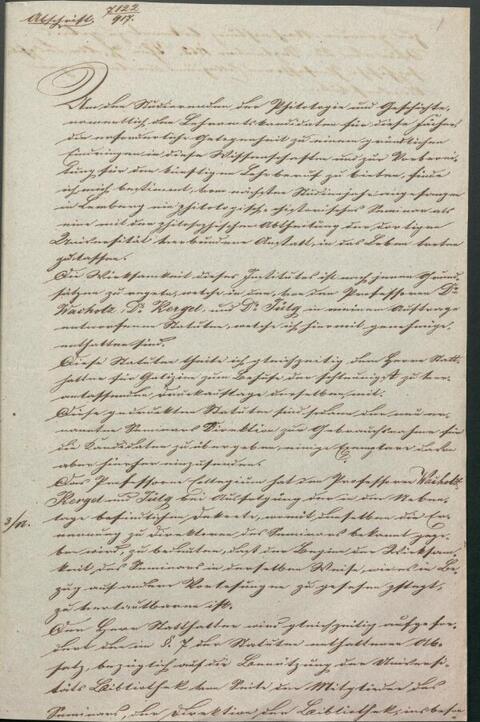 Abschrift. 7122/917.
Um den Studierenden der Philologie und Geschichte,
namentlich den Lehramtskandidaten für diese Fächer
die erforderliche Gelegenheit zu einem gründlichen
Eindringen in diese Wissenschaften und zur Vorberei-
tung für den künftigen Lehrberuf zu bieten, finde
ich mich bestimmt, vom nächsten Studienjahre angefangen
in Lemberg ein philologisch-historisches Seminar als
eine mit der philosophischen Abtheilung der dortigen
Universität verbundene Anstalt, in das Leben treten
zu lassen.
Die Wirksamkeit dieses Institutes ist nach jenen Grund-
sätzen zu regeln, welche in den, von den Professoren Dr
Wacholz, Dr. Kergel, und Dr Jülg in meinem Auftrage
entworfenen Statuten, welche ich hiermit genehmige,
enthalten sind.
Diese Statuten theile ich gleichzeitig dem Herrn Statt-
halter für Galizien zum Behufe der schleunigst zu ver-
anlassenden Drucklegung derselben mit.
Diese gedruckten Statuten sind sodann der neu er-
nannten Seminars Direktion zur Gebrauchnahme für
die Kandidaten zu übergeben, einige Exemplare davon
aber hierher einzusenden.
Das Professoren Collegium hat den Professoren Wacholz
Kergel und Jülg bei Zufertigung der in der Neben-
lage befindlichen Dekrete, womit denselben die Er-
3/n.
nennung zu Direktoren des Seminars bekannt gege-
ben wird, zu bedeuten, daß der Beginn der Wirksam-
keit des Seminars in derselben Weise, wie es in Be-
zug auf andere Vorlesungen zu geschehen pflegt,
zu verlautbaren ist.
Der Herr Statthalter wird gleichzeitig aufgefor-
dert den in §. 7 der Statuten enthaltenen Ab-
satz, bezüglich auf die Benützung der Universi-
täts Bibliothek von Seite der Mitglieder des
Seminars, der Direktion der Bibliothek, insbeson